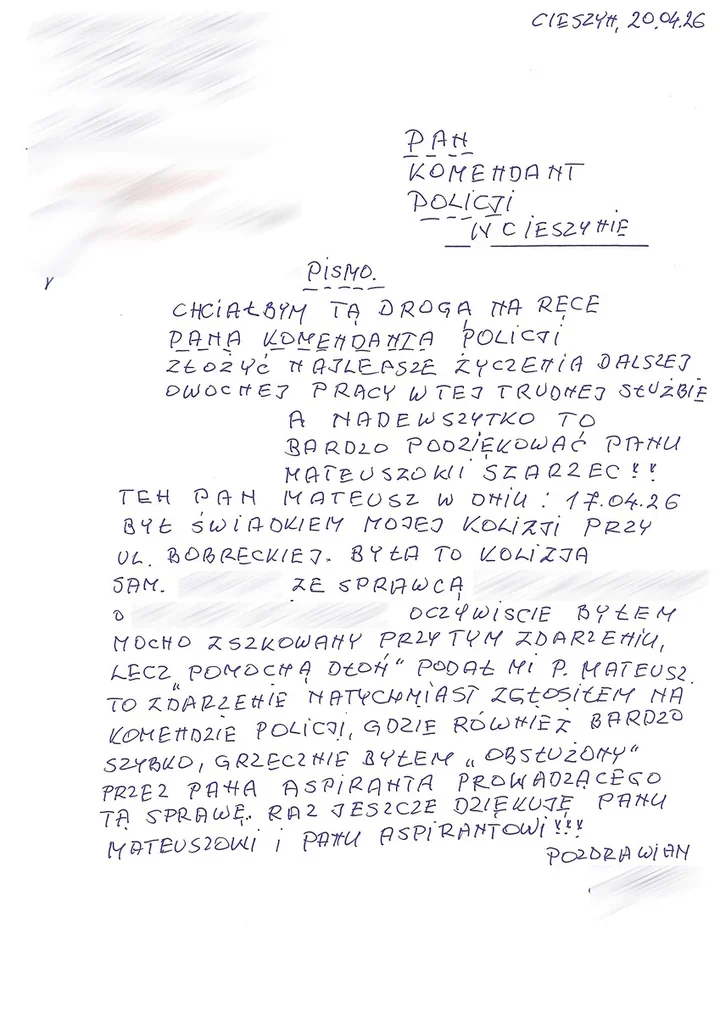 CIESZYN, 20.04.26
PAN
KOMENDANT
POLICJI
W CIESZYNIE
PISMO.
CHCIAŁBYM TĄ DROGĄ NA RĘCE
PANA KOMENDANTA POLICJI
ZŁOŻYĆ NAJLEPSZE ŻYCZENIA DALSZEJ
OWOCNEJ PRACY W TEJ TRUDNEJ SŁUŻBIE
A NADEWSZYTKO TO
BARDZO PODZIĘKOWAĆ PANU
MATEUSZOWI SZARZEC!!
TEN PAN MATEUSZ W DNIU: 17.04.26
BYŁ ŚWIADKIEM MOJEJ KOLIZJI PRZY
UL. BOBRECKIEJ. BYŁA TO KOLIZJA
SAM. ZE SPRAWCĄ
O OCZYWIŚCIE BYŁEM
MOCNO ZSZKOWANY PRZY TYM ZDARZENIU,
LECZ „POMOCNĄ DŁOŃ" PODAŁ MI P. MATEUSZ.
TO ZDARZENIE NATYCHMIAST ZGŁOSIŁEM NA
KOMENDZIE POLICJI, GDZIE RÓWNIEŻ BARDZO
SZYBKO, GRZECZNIE BYŁEM „OBSŁUŻONY"
PRZEZ PANA ASPIRANTA PROWADZĄCEGO
TĄ SPRAWĘ. RAZ JESZCZE DZIĘKUJĘ PANU
MATEUSZOWI i PANU ASPIRANTOWI!!!
POZDRAWIAM